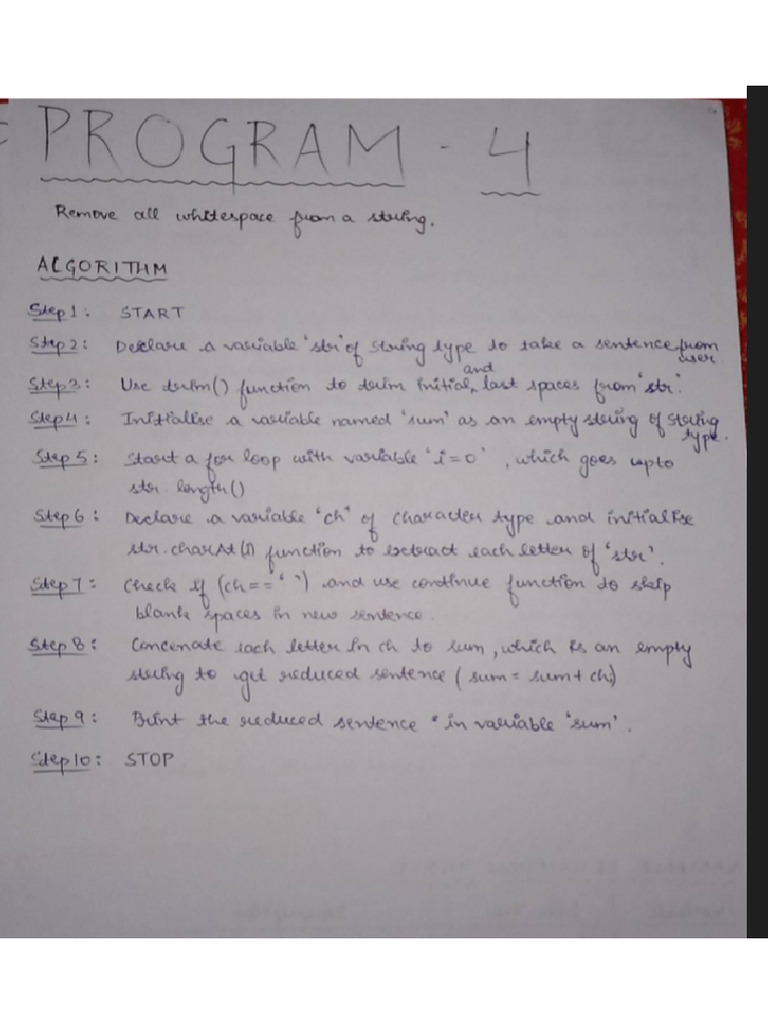 PROGRAM - 4
Remove all whitespace from a string.
ALGORITHM
Step 1: START
Step 2: Declare a variable 'str' of string type to take a sentence from
user.
Step 3: Use trim() function to trim initial and last spaces from "str".
Step 4: Initialise a variable named 'sum' as an empty string of string
type.
Step 5: Start a for loop with variable 'i=0', which goes upto
str.length()
Step 6: Declare a variable "ch" of character type and initialise
str.charAt(i) function to extract each letter of 'str'.
Step 7: Check if (ch==' ') and use continue function to skip
blank spaces in new sentence.
Step 8: Concenate each letter in ch to sum, which is an empty
string to get reduced sentence (sum = sum + ch;)
Step 9: Print the reduced sentence in variable 'sum'.
Step 10: STOP